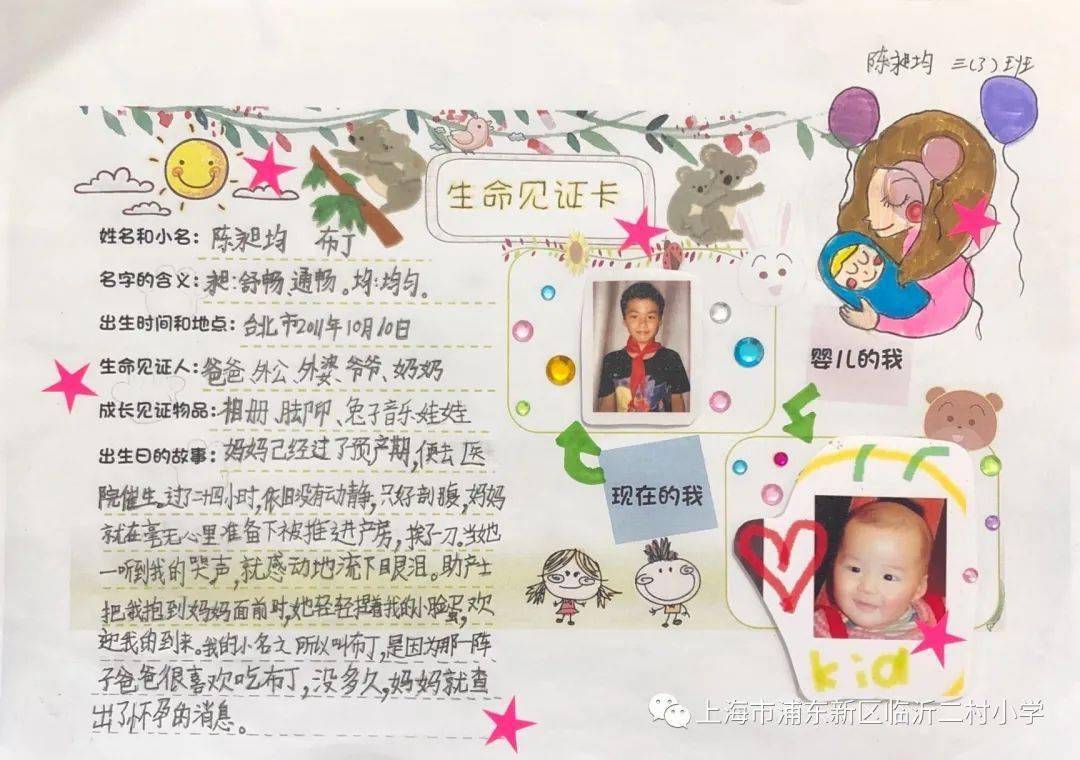 陈昶均 三(3)班
生命见证卡
姓名和小名: 陈昶均 布丁
名字的含义: 昶:舒畅、通畅。均:均匀。
出生时间和地点: 台北市2011年10月10日
生命见证人: 爸爸、外公、外婆、爷爷、奶奶
成长见证物品: 相册、脚印、兔子音乐娃娃
出生日的故事: 妈妈已经过了预产期,便去医
院催生。过了二十四小时,依旧没有动静,只好剖腹,妈妈
就在毫无心里准备下被推进产房,挨了一刀。当她
一听到我的哭声,就感动地流下眼泪。助产士
把我抱到妈妈面前时,她轻轻捏着我的小脸蛋,欢
迎我的到来。我的小名之所以叫布丁,是因为那一阵
子爸爸很喜欢吃布丁,没多久,妈妈就查
出了怀孕的消息。
婴儿的我
现在的我
kid
上海市浦东新区临沂二村小学